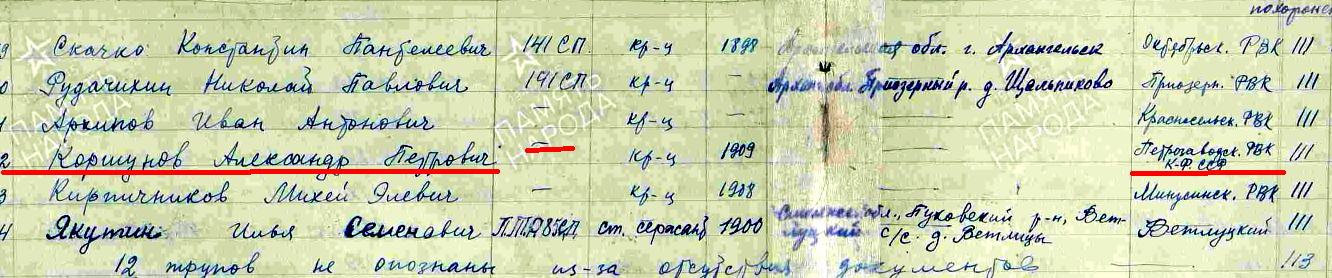 похоронен
9 Скачко Константин Пантелеевич 141 СП. кр-ц 1898 обл. г. Архангельск Октябрьск. РВК 111
0 Рудачихин Николай Павлович 141 СП кр-ц — Архан. обл. Приозерный р. д. Щальпиково Приозерн. РВК 111
1 Архипов Иван Антонович — кр-ц — — Красносельск. РВК 111
2 Коршунов Александр Петрович — кр-ц 1909 — Петрозаводск. РВК 111
К-Ф. ССР
3 Кирпичников Михей Элевич — кр-ц 1908 — Минусинск. РВК 111
4 Якутин Илья Семенавич ст. сержант 1900 обл., р-н, Вет-
луцкий с/с. д. Ветлицы Ветлуцкий 111
12 трупов не опознаны из-за отсутствия документов 113
ПАМЯТЬ НАРОДА
ПАМЯТЬ НАРОДА
ПАМЯТЬ НАРОДА